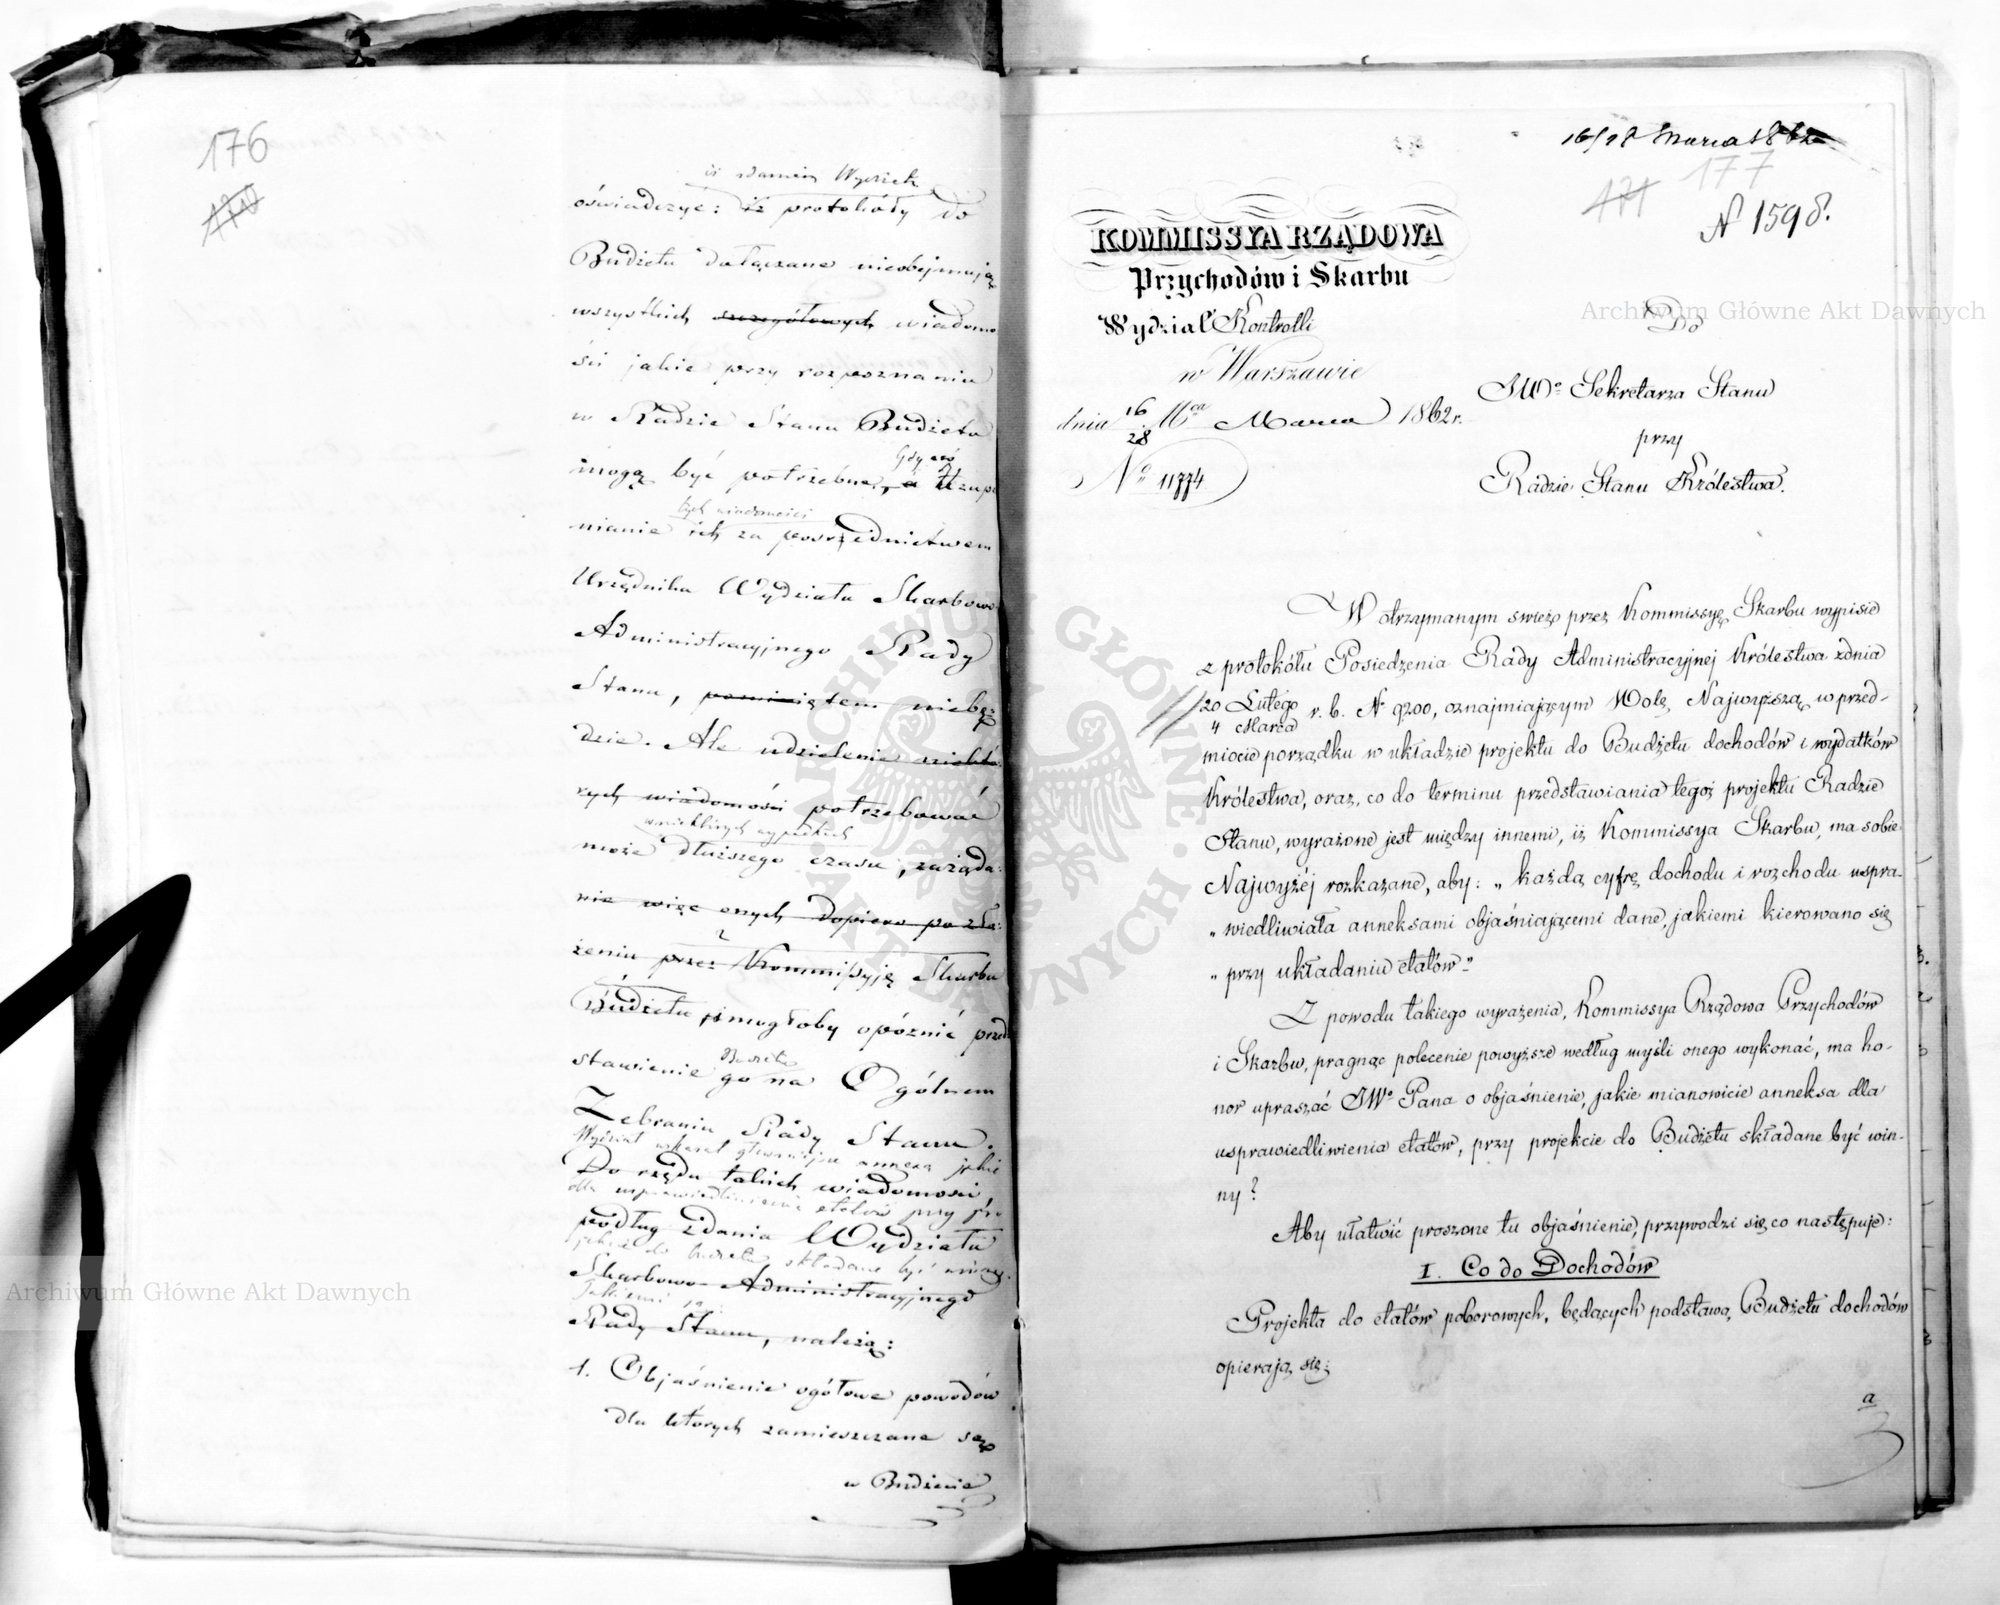 176
oświadczyć: iż protokóły do
Budżetu dołączane nieobejmują
wszystkich szczegółowych wiadomo
ści jakie przy rozpoznaniu
w Radzie Stanu Budżetu
mogą być potrzebne, a Uzupeł
Gdy zaś
nianie ich za pośrednictwem
tych wiadomości
Urzędnika Wydziału Skarbowo
Administracyjnego Rady
Stanu, pominiętem niebę
dzie. Ale udzielenie niektó:
rych wiadomości potrzebować
w niektórych wypadkach
może dłuższego czasu, zażąda:
nie więc onych dopiero po zło:
żeniu przez Kommissyję Skarbu
Budżetu, mogłoby opóźnić przed
stawienie go na Ogólnem
Budżetu
Zebraniu Rady Stanu.
Do rzędu takich wiadomości,
podług zdania Wydziału
Skarbowo Administracyjnego
Rady Stanu, należą:
1. Objaśnienie ogółowe powodów
dla których zamieszczane są
w Budżecie
16/28 Marca 1862
177
171
N 1598.
KOMMISSYA RZĄDOWA
Przychodów i Skarbu
Wydział Kontrolli
w Warszawie
dnia 16/28 Mca Marca 1862 r.
No 11774
Do
JWo Sekretarza Stanu
przy
Radzie Stanu Królestwa.
W otrzymanym świeżo przez Kommissyę Skarbu wypisie
z protokółu Posiedzenia Rady Administracyjnej Królestwa z dnia
20 Lutego / 4 Marca r. b. N 9200, oznajmiającym Wolę Najwyższą w przed-
miocie porządku w układzie projektu do Budżetu dochodów i wydatków
Królestwa, oraz, co do terminu przedstawiania tegoż projektu Radzie
Stanu, wyrażone jest między innemi, iż Kommissya Skarbu, ma sobie
Najwyżej rozkazane, aby: „każdą cyfrę dochodu i rozchodu uspra-
„wiedliwiała anneksami objaśniającemi dane, jakiemi kierowano się
„przy układaniu etatów."
Z powodu takiego wyrażenia, Kommissya Rządowa Przychodów
i Skarbu, pragnąc polecenie powyższe według myśli onego wykonać, ma ho-
nor upraszać JWo Pana o objaśnienie, jakie mianowicie anneksa dla
usprawiedliwienia etatów, przy projekcie do Budżetu składane być win-
ny?
Aby ułatwić proszone tu objaśnienie, przywodzi się co następuje:
I. Co do Dochodów
Projekta do etatów poborowych, będących podstawą Budżetu dochodów
opierają się:
a
Archiwum Główne Akt Dawnych
Archiwum Główne Akt Dawnych
ARCHIWUM GŁÓWNE AKT DAWNYCH